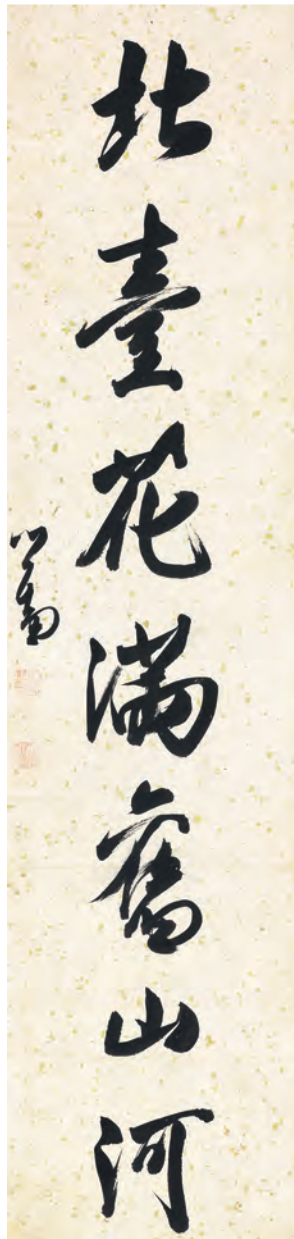 北臺花滿舊山河
心畬